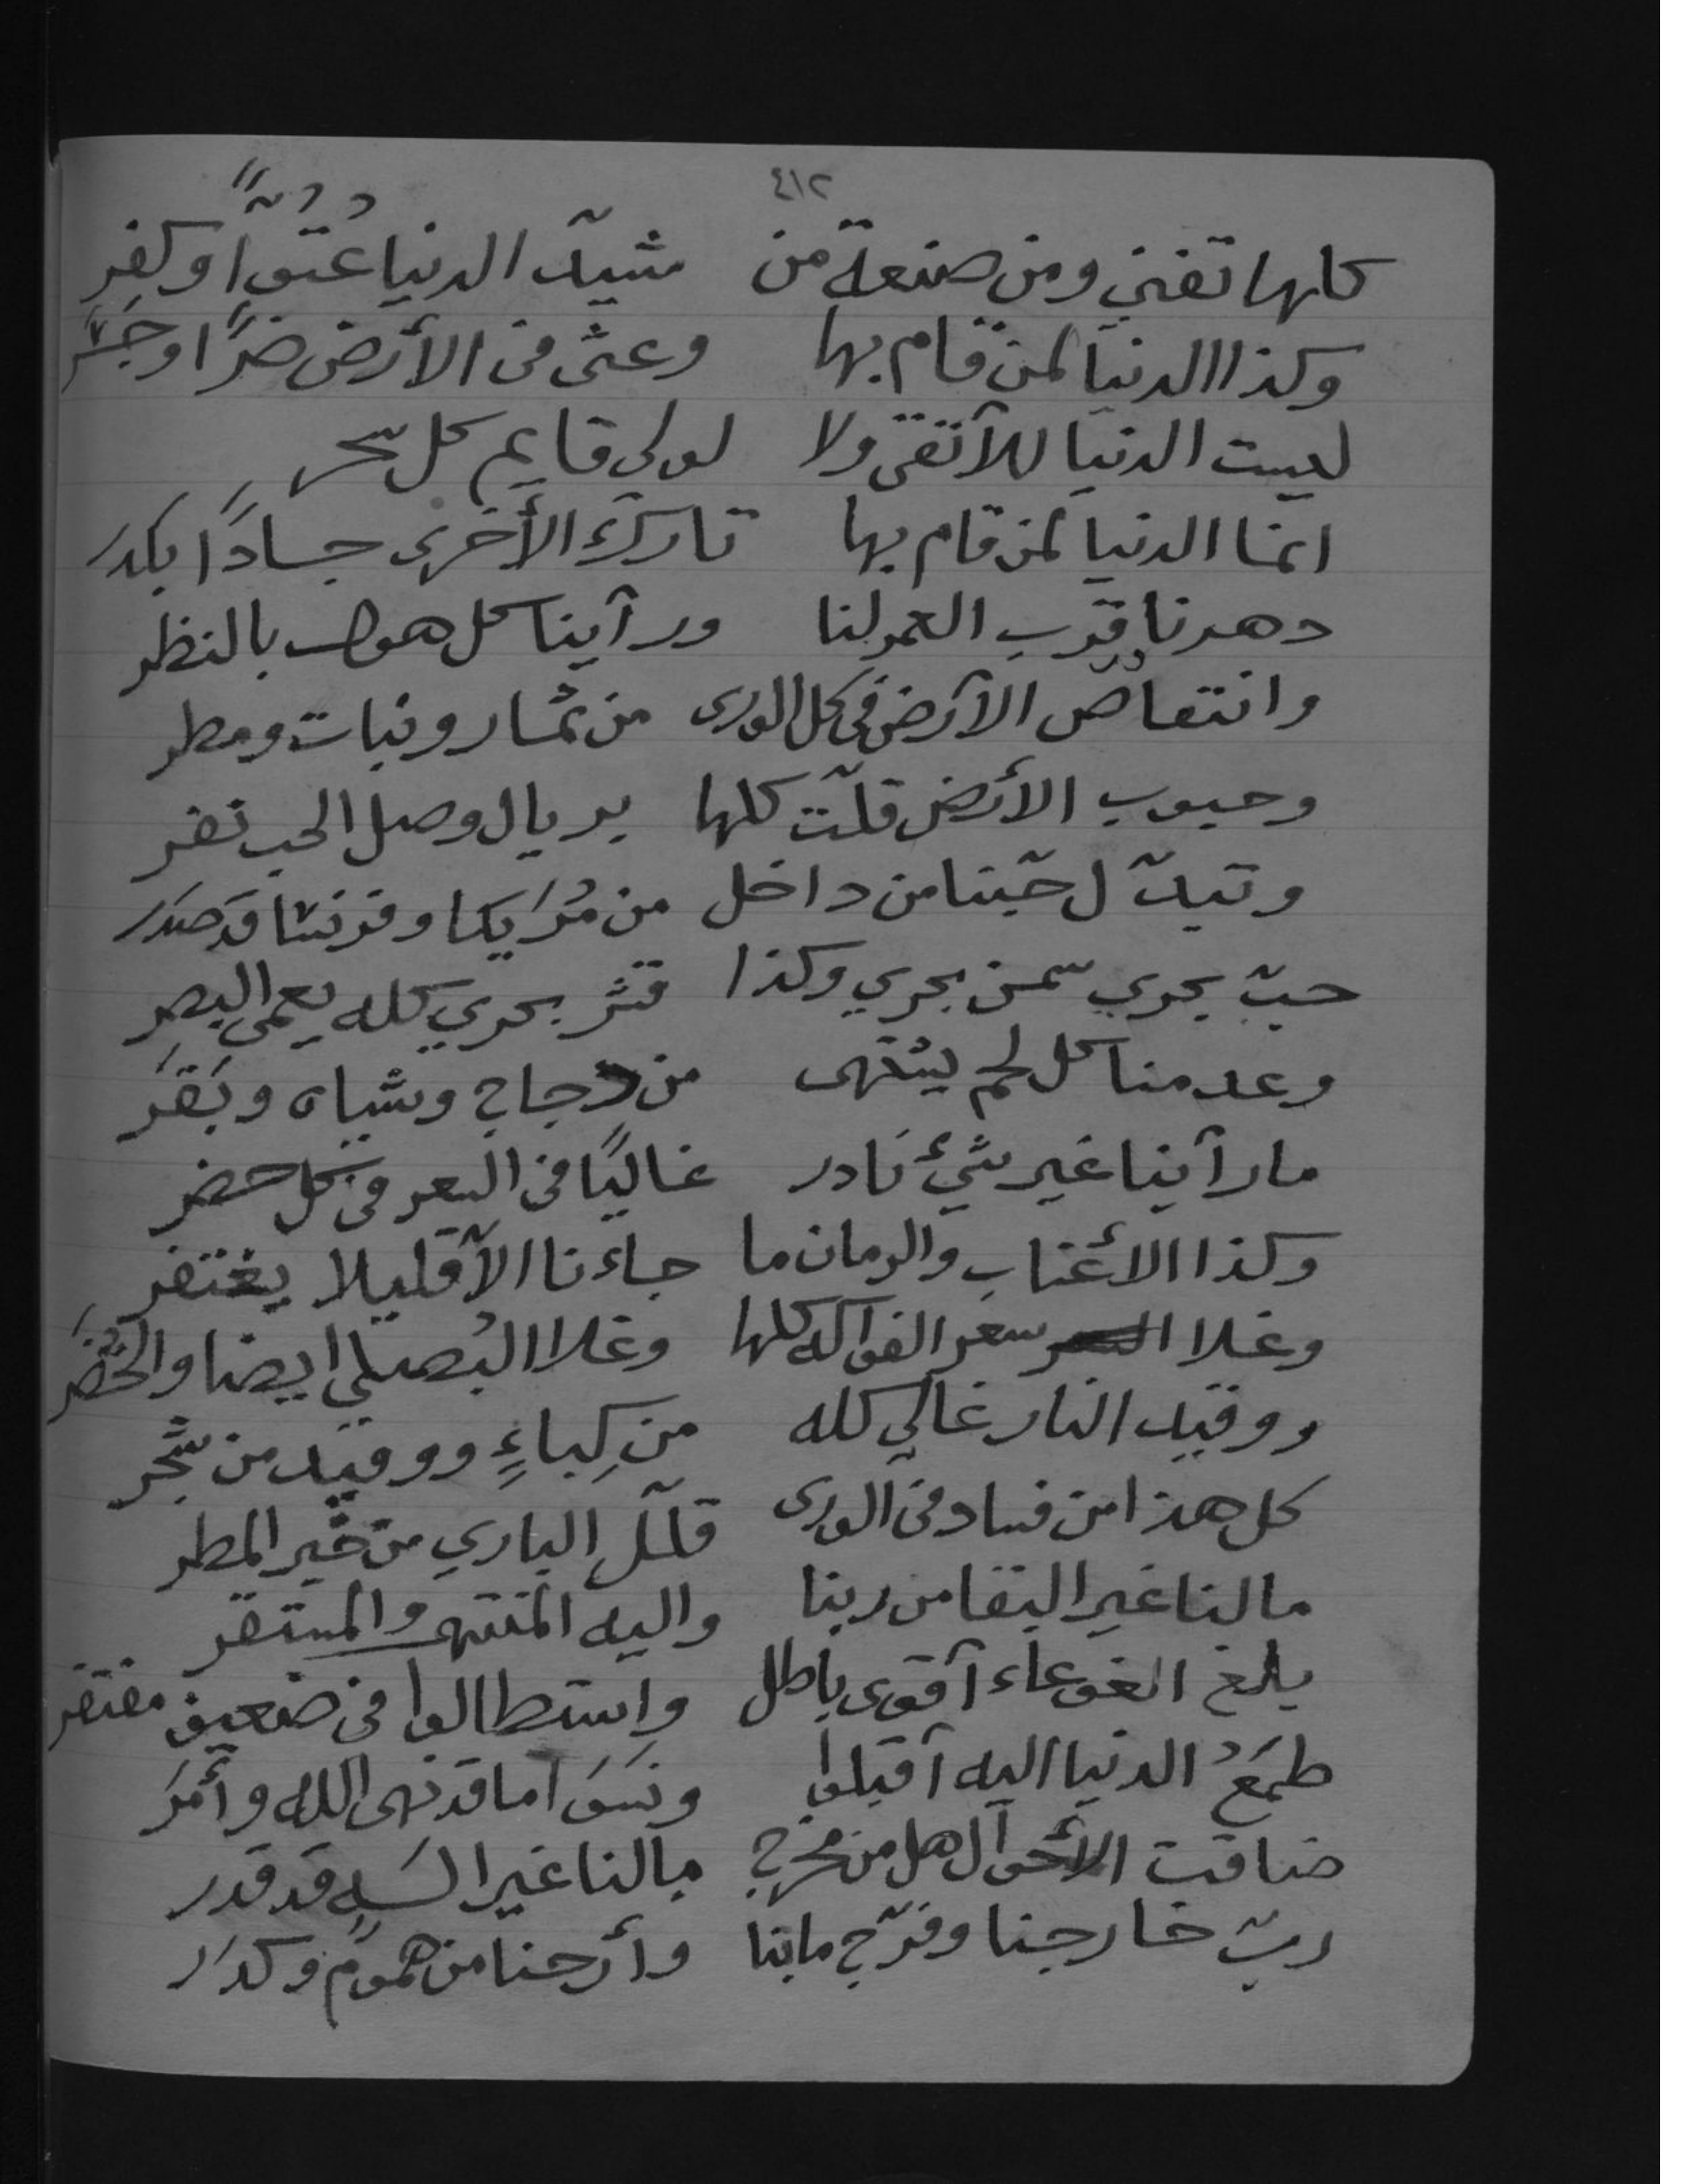 ٤١٢
كلها تفنى ومن صنعة من شيّد الدنيا عُتوًّا وكفر
وكذا الدنيا لمن قام بها وعثى في الأرض ضرًّا وجَشَر
ليست الدنيا للآتقى ولا لولي قايم كل سحر
انما الدنيا لمن قام بها تارك الأخرى جسادًا بكدر
دهرنا قرّب العمر لنا ورآينا كل هول بالنظر
وانتقاص الآرض في كل الورى من ثمار ونبات ومطر
وحبوب الأرض قلّت كلها بريال وصل الحب نفر
وتبدّل حبّنا من داخل من مُرَيكا وفرنسا قد صدر
حبّ بحري سمن بحري وكذا قشر بحري كله يعمي البصر
وعدمنا كل لحم يشتهى من دجاج وشياه وبَقَر
ما رآينا غير شيء نادر غاليًا في السعر في كل حضر
وكذا الأعناب والرمان ما جاءنا الآ قليلا يغتفر
وغلا سعر الفواكه كلها وغلا البُصلي ايضا والخُضَر
ووقيد النار غالي كله من كِباءٍ ووقيد من شجر
كل هذا من فساد في الورى قلّل الباري من خير المطر
ما لنا غير البقا من ربنا واليه المنتهى والمستقر
بلغ الغوغاء آقوى باطل واستطالوا في ضعيف مفتقر
طمَعُ الدنيا اليه آقبلوا ونسَوَا ما قد نهى الله وأمَرَ
ضاقت الأحوال هل من مخرج ما لنا غير الذي قد قدر
ربّ خارجنا وفرّج ما بنا وأرحنا من هموم وكدر